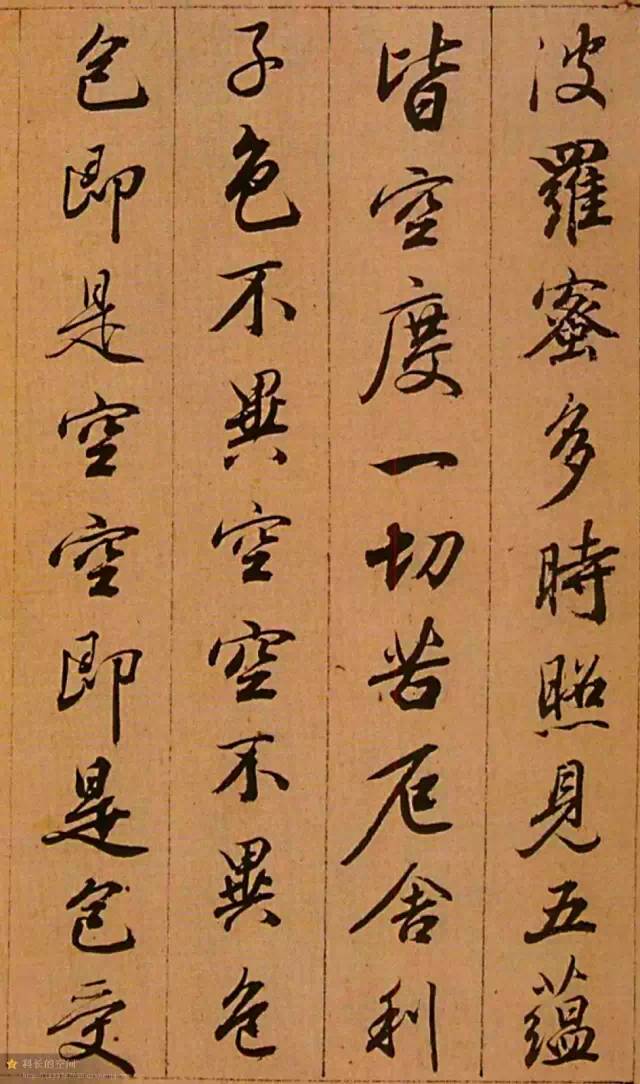 波羅蜜多時照見五蘊
皆空度一切苦厄舍利
子色不異空空不異色
色即是空空即是色受
科长的空间